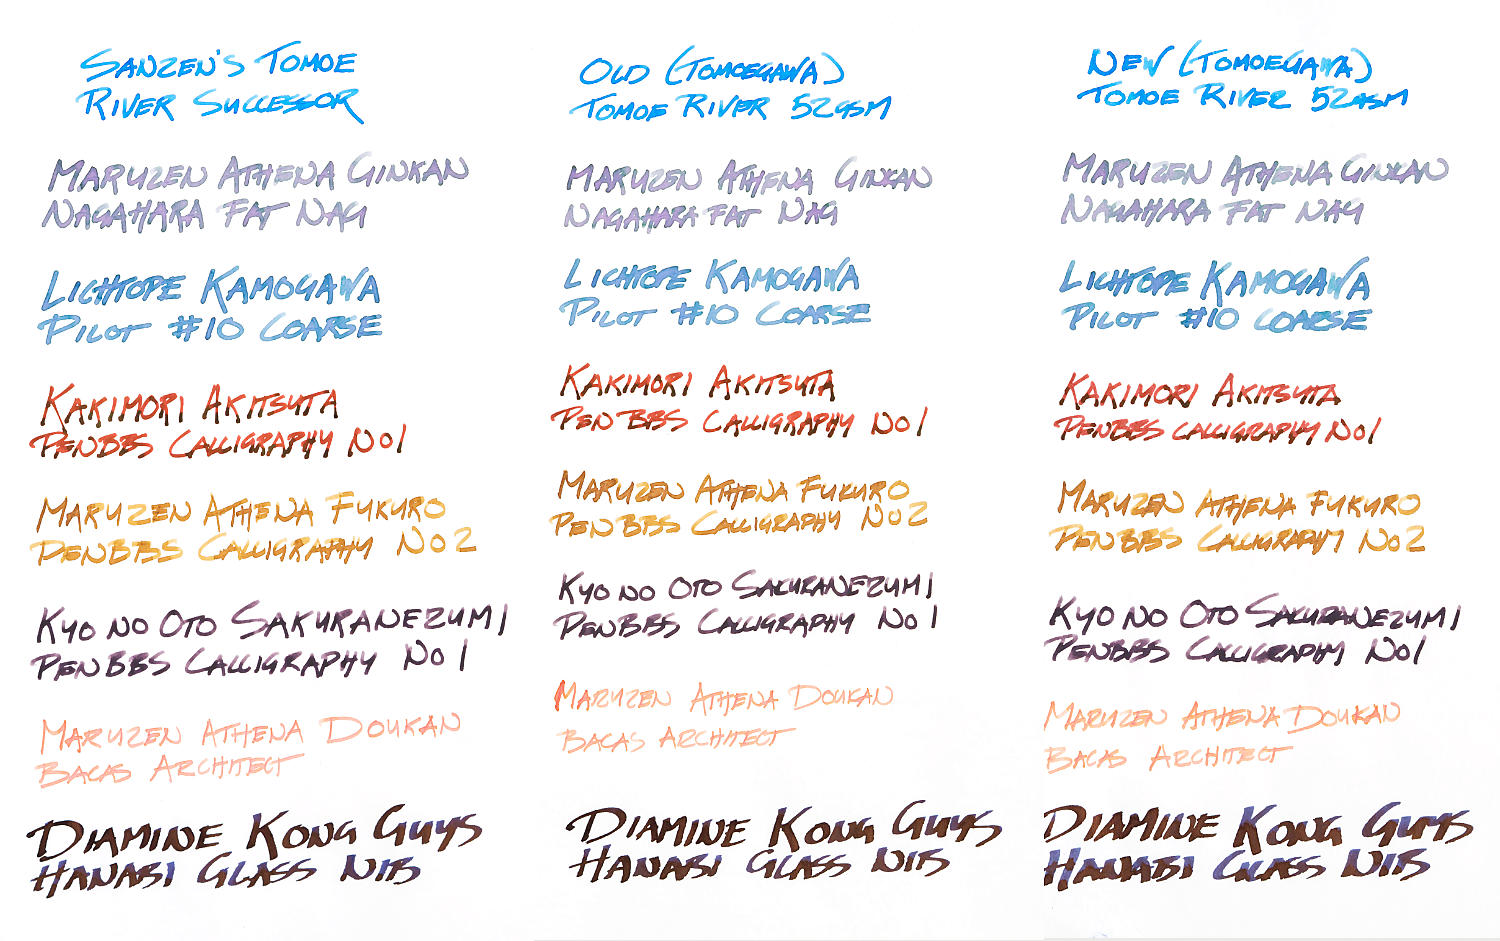 SANZEN'S TOMOE
RIVER SUCCESSOR
MARUZEN ATHENA GINKAN
NAGAHARA FAT NAG
LICHTOPE KAMOGAWA
PILOT #10 COARSE
KAKIMORI AKITSUTA
PENBBS CALLIGRAPHY NO 1
MARUZEN ATHENA FUKURO
PENBBS CALLIGRAPHY NO 2
KYO NO OTO SAKURANEZUMI
PENBBS CALLIGRAPHY NO 1
MARUZEN ATHENA DOUKAN
BACAS ARCHITECT
DIAMINE KONG GUYS
HANABI GLASS NIB
OLD (TOMOEGAWA)
TOMOE RIVER 52GSM
MARUZEN ATHENA GINKAN
NAGAHARA FAT NAG
LICHTOPE KAMOGAWA
PILOT #10 COARSE
KAKIMORI AKITSUTA
PENBBS CALLIGRAPHY NO 1
MARUZEN ATHENA FUKURO
PENBBS CALLIGRAPHY NO 2
KYO NO OTO SAKURANEZUMI
PENBBS CALLIGRAPHY NO 1
MARUZEN ATHENA DOUKAN
BACAS ARCHITECT
DIAMINE KONG GUYS
HANABI GLASS NIB
NEW (TOMOEGAWA)
TOMOE RIVER 52GSM
MARUZEN ATHENA GINKAN
NAGAHARA FAT NAG
LICHTOPE KAMOGAWA
PILOT #10 COARSE
KAKIMORI AKITSUTA
PENBBS CALLIGRAPHY NO 1
MARUZEN ATHENA FUKURO
PENBBS CALLIGRAPHY NO 2
KYO NO OTO SAKURANEZUMI
PENBBS CALLIGRAPHY NO 1
MARUZEN ATHENA DOUKAN
BACAS ARCHITECT
DIAMINE KONG GUYS
HANABI GLASS NIB